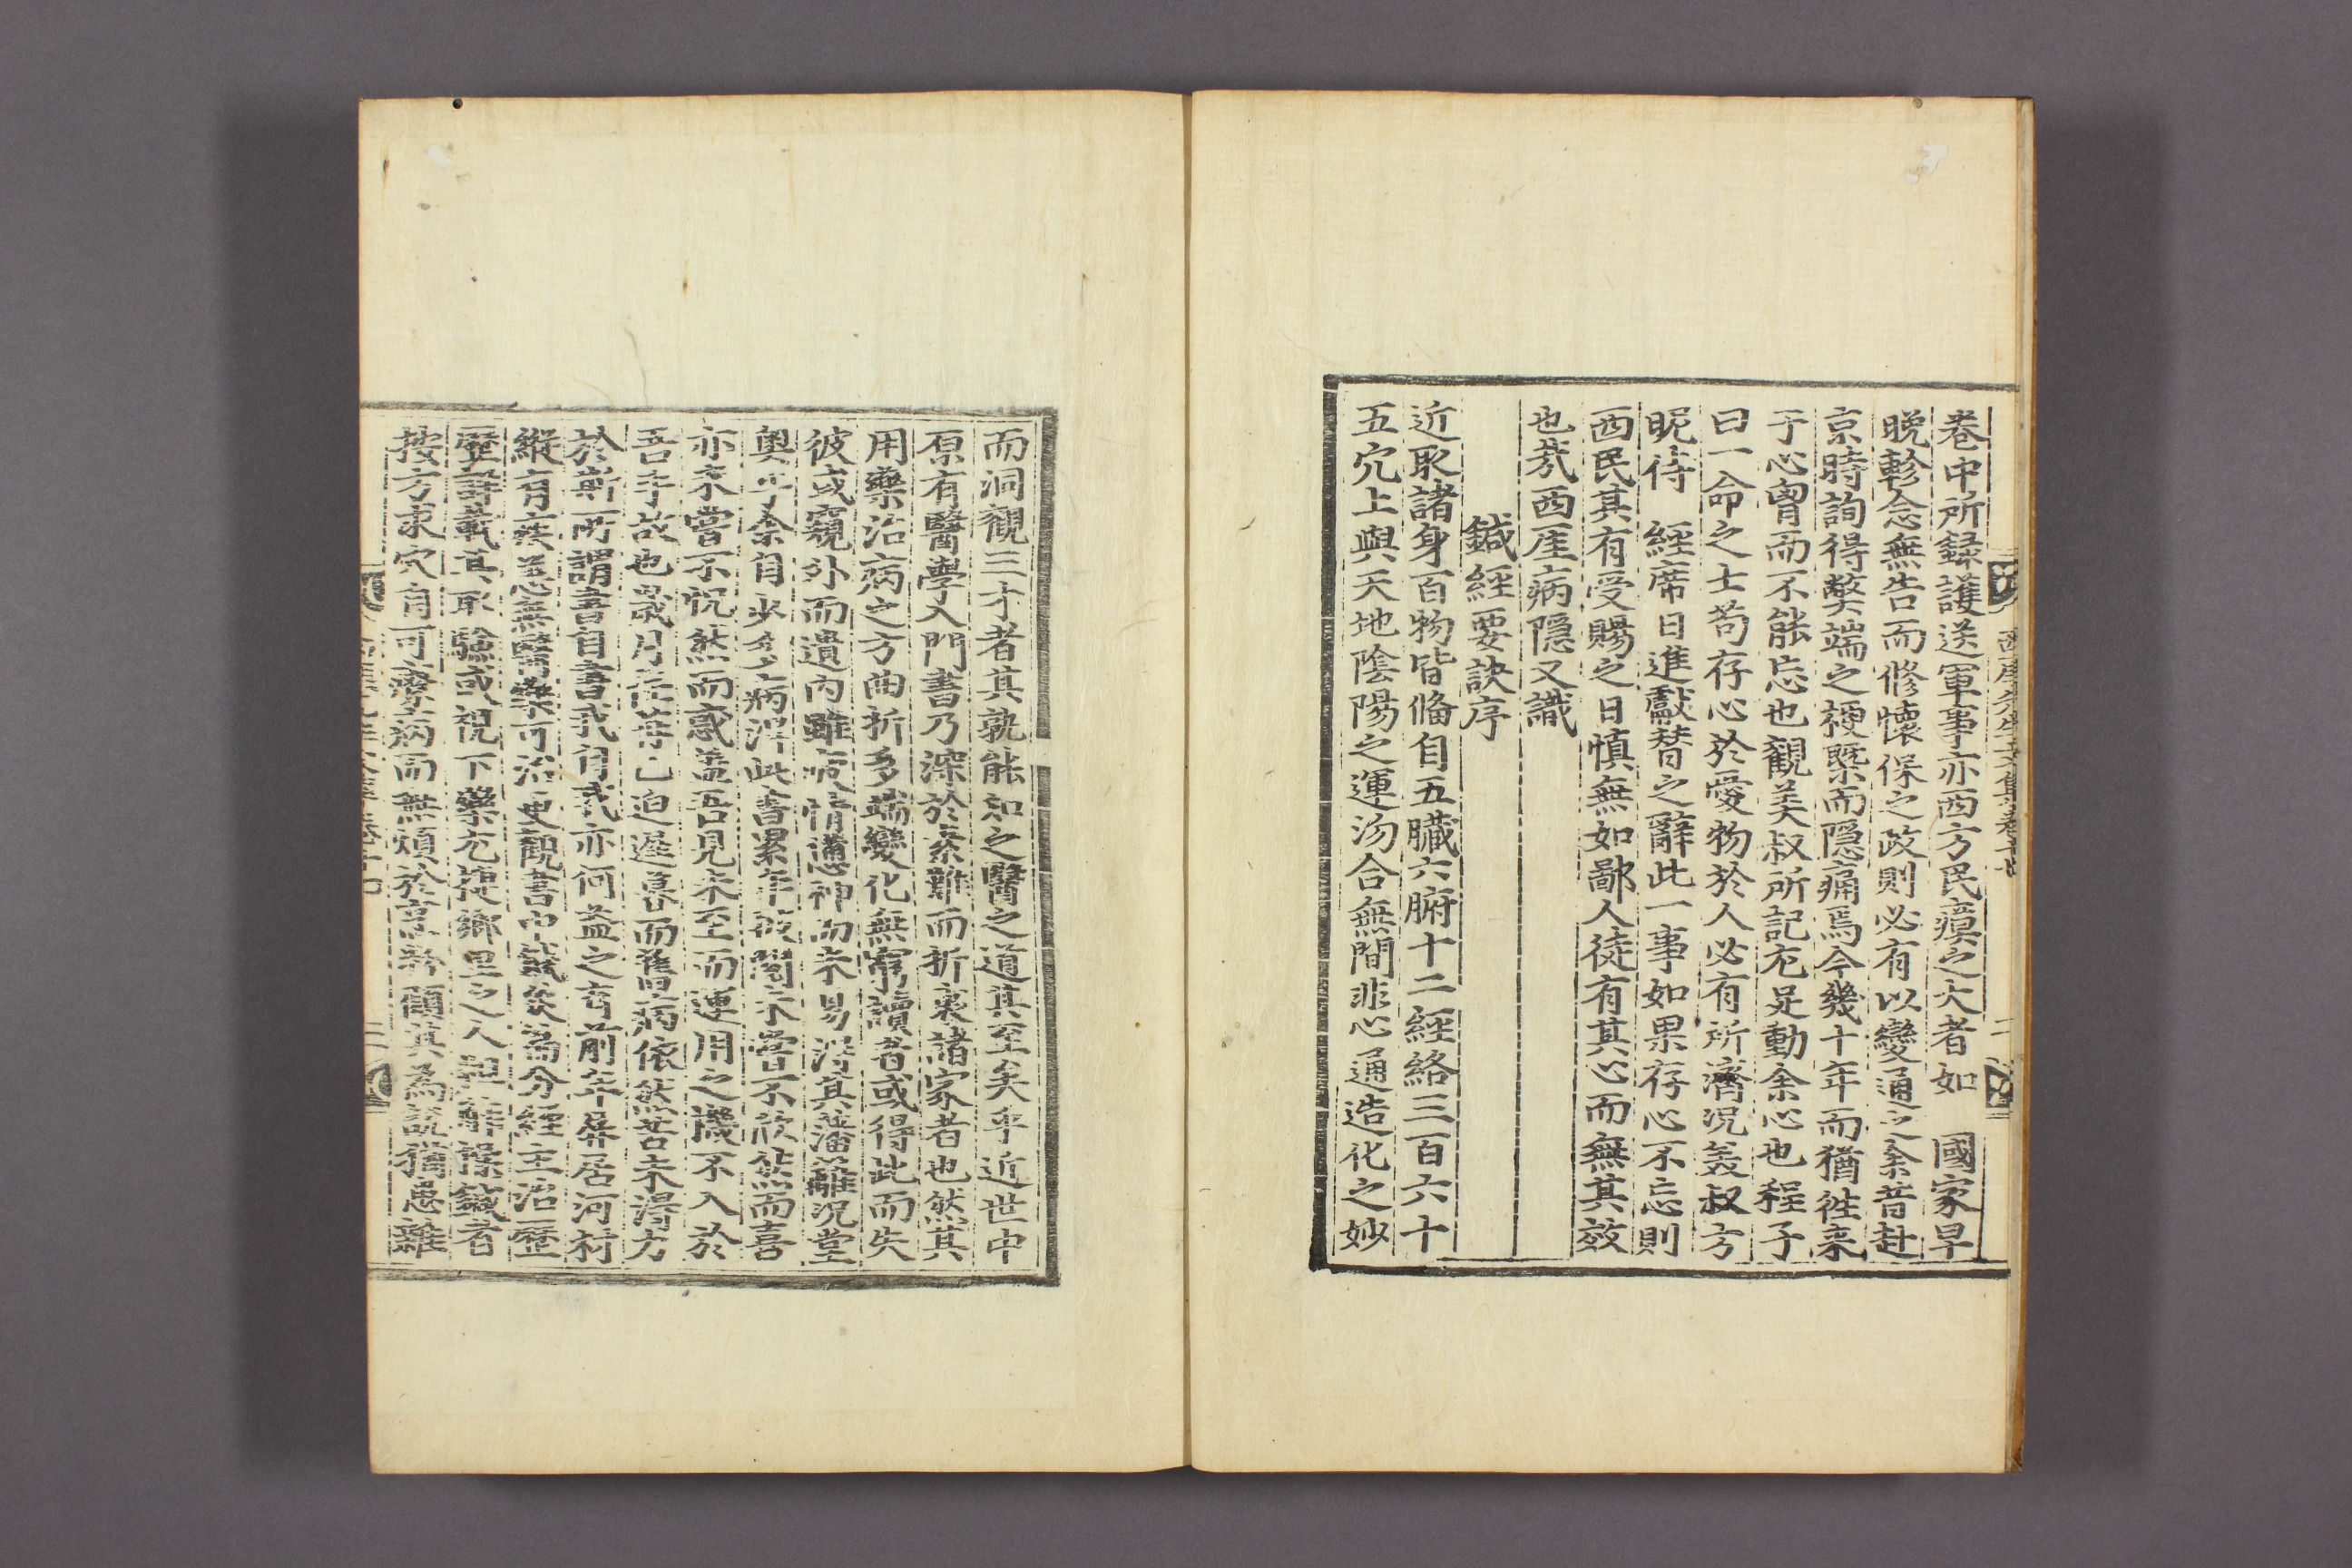 卷中所錄護送軍事亦西方民瘼之大者如 國家早
晩軫念無告而修懷保之政則必有以變通之余昔赴
京時詢得弊端之梗槩而隱痛焉今幾十年而猶徃来
于心胷而不能忘也觀美叔所記尤足動余心也程子
曰一命之士苟存心於愛物於人必有所濟况美叔方
昵侍 經席日進獻替之辭此一事如果存心不忘則
西民其有受賜之日愼無如鄙人徒有其心而無其效
也㢤西厓病隱又識
鍼經要訣序
近取諸身百物皆備自五臟六腑十二經絡三百六十
五穴上與天地隂陽之運沕合無間非心通造化之妙
而洞觀三才者其孰能知之醫之道其至矣乎近世中
原有醫學入門書乃深於素難而折衷諸家者也然其
用藥治病之方曲折多端變化無窮讀者或得此而失
彼或窺外而遺內雖疲精憊神而未易得其藩籬况堂
奧乎余自少多病得此書累年披閱未嘗不欣然而喜
亦未嘗不怳然而惑盖吾見未至而運用之機不入於
吾手故也歲月荏苒已迫遲暮而舊病依然苦未得力
於斯所謂書自書我自我亦何益之有前年屏居河村
縱有疾恙無醫藥可治更觀書中鍼灸篇分經主治歷
歷詳載其取驗或視下藥尤捷鄕里之人粗解操鍼者
按方求穴自可療病而無煩於京師顧其爲說猶患雜
西厓先生文集卷十七
二